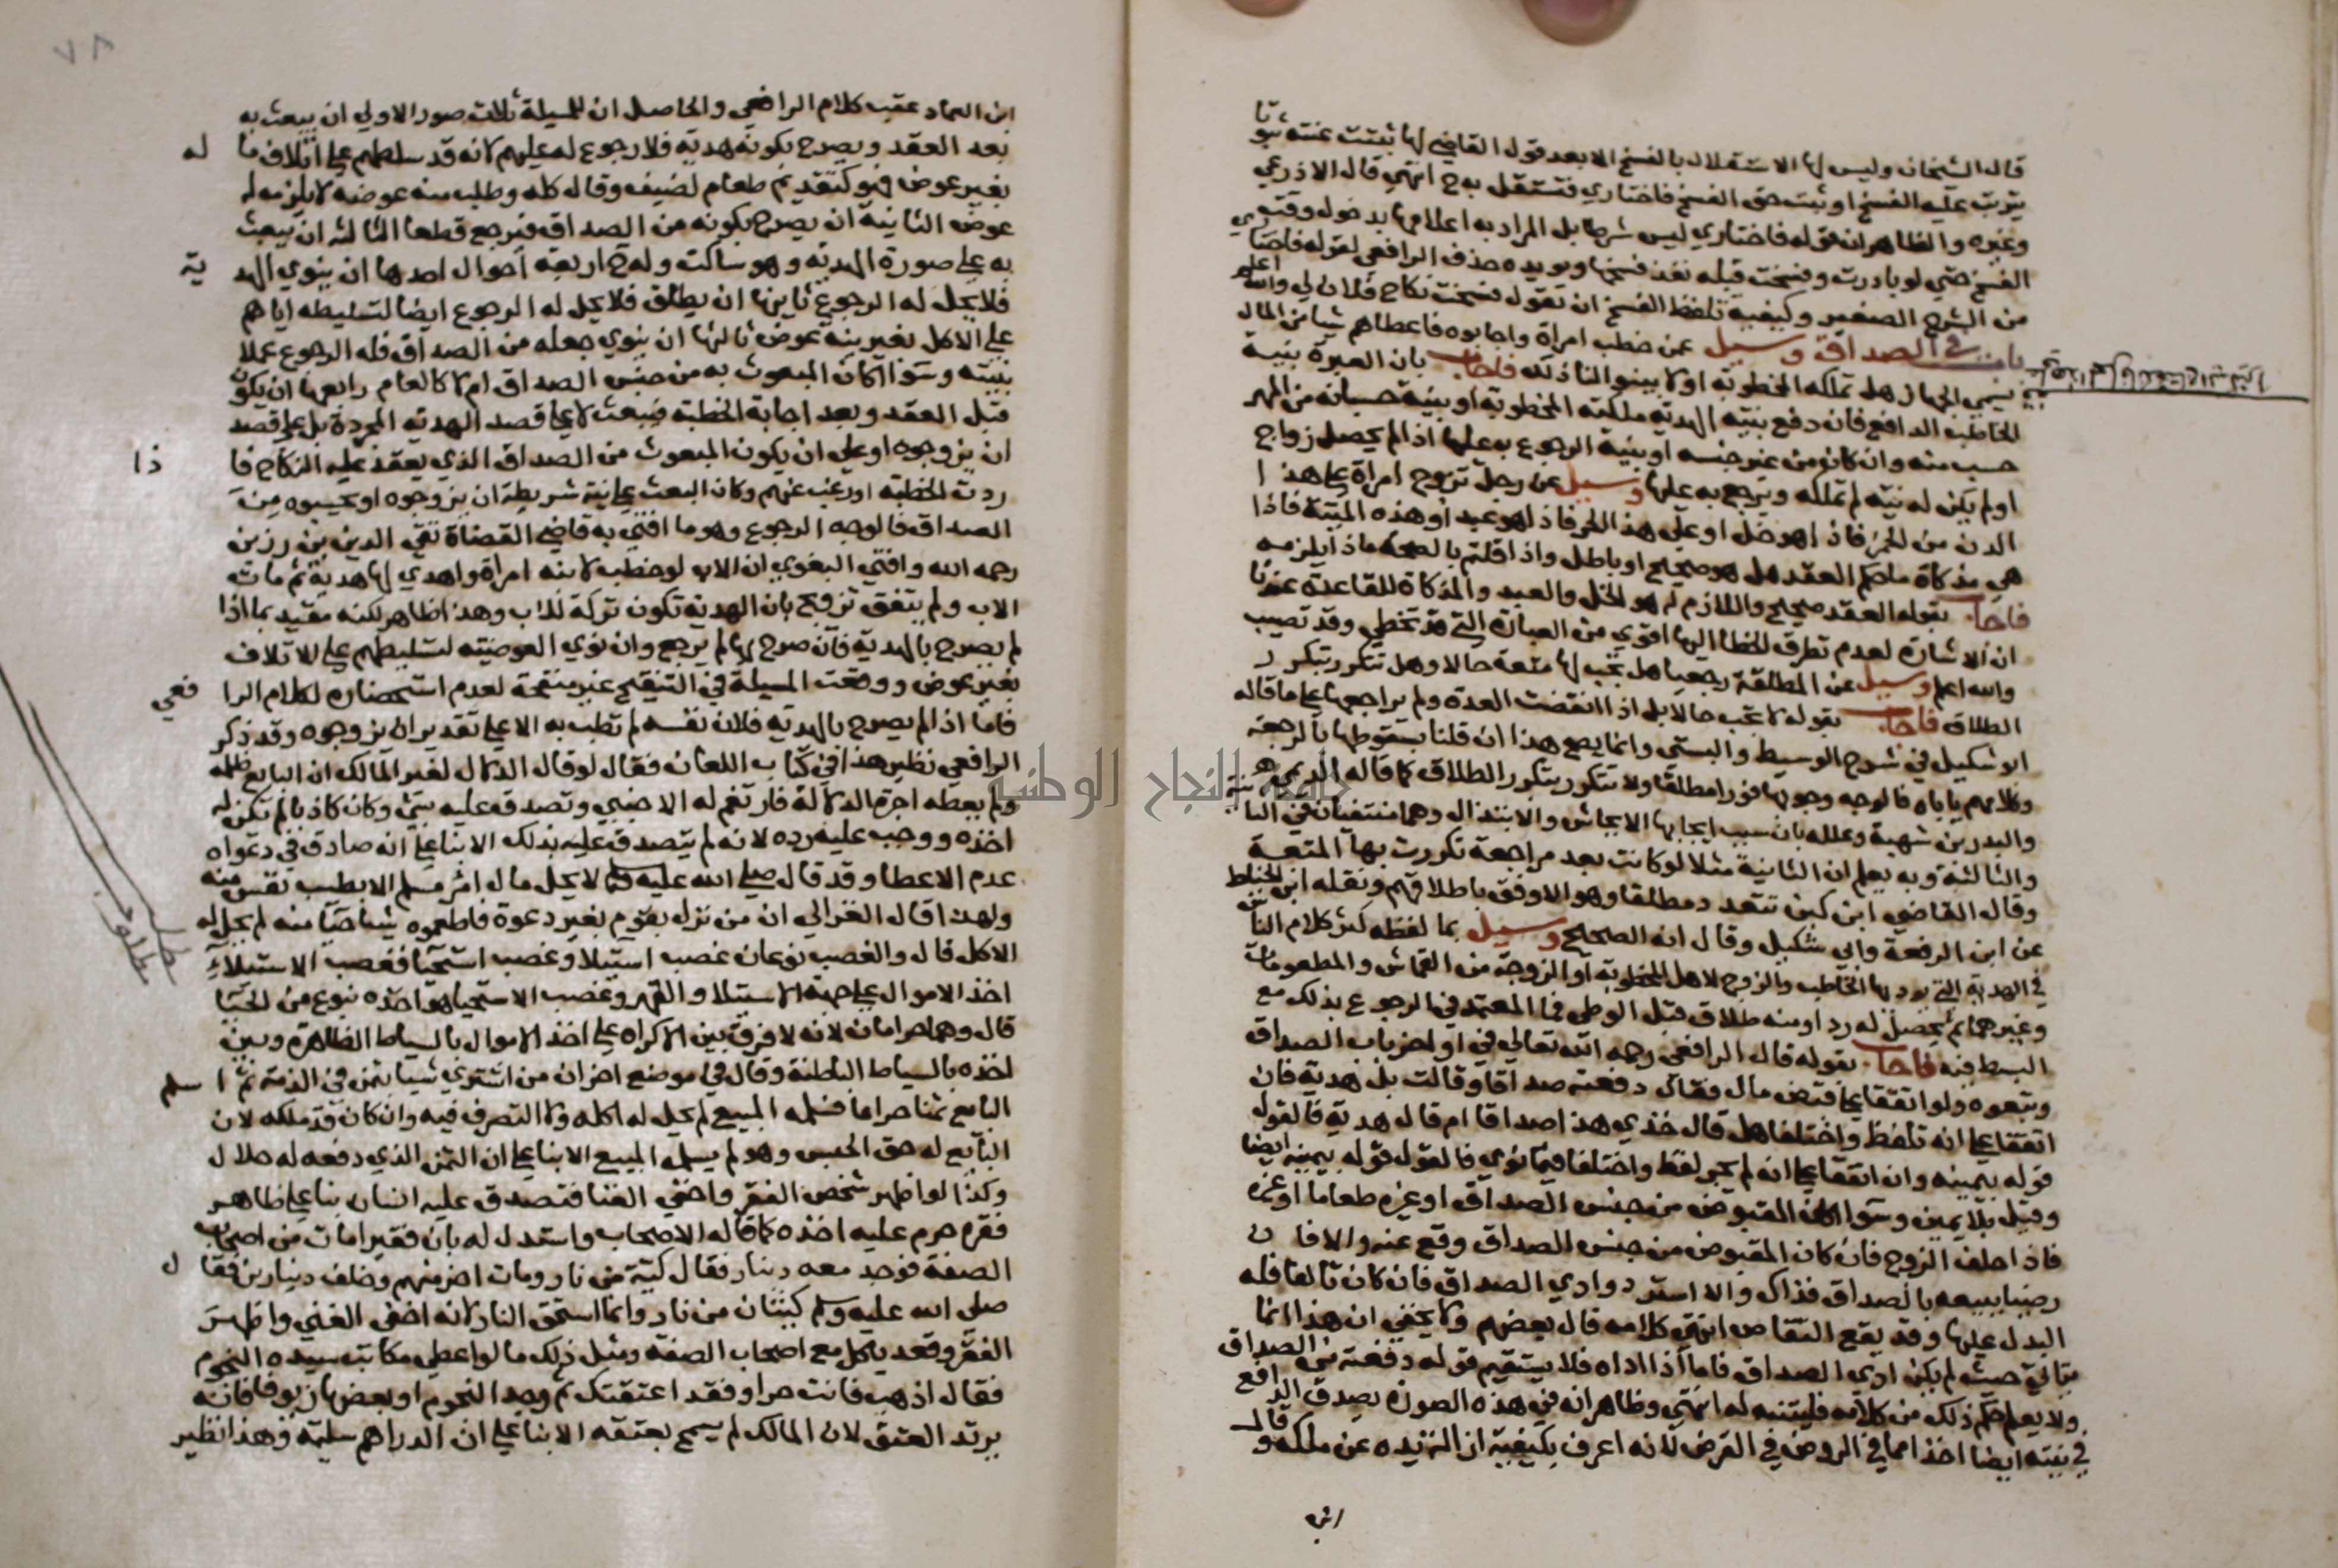 قاله الشيخان وليس لها الاستقلال بالفسخ الا بعد قول القاضي لها ثبتت عنته ثبوتا
يترتب عليه الفسخ او ثبت حق الفسخ فاختاري فتستقل به ح انتهى قال الاذرعي
وغيره والظاهر ان قوله فاختاري ليس شرطا بل المراد به اعلامها بدخول وقت
الفسخ حتى لو بادرت وفسخت قبله نفذ فسخها ويويده حذف الرافعي لقوله فاختاري
من الشرح الصغير وكيفية تلفظ الفسخ ان تقول فسخت نكاح فلان لي والله اعلم
باب في الصداق وسيل عمن خطب امراة واجابوه فاعطاهم شيا من المال
يسمى الجهاز هل تملكه المخطوبة او لا بينوا لنا ذلك فاجاب بان العبرة بنية
الخاطب الدافع فان دفع بنية الهدية ملكته المخطوبة او بنية حسبانه من المهر
حسب منه وان كان من غير جنسه او بنية الرجوع به عليها اذا لم يحصل زواج
او لم يكن له نية لم تملكه ويرجع به عليها وسيل عن رجل تزوج امراة على هذا
الدن من الخمر فاذا هو خل او على هذا الحر فاذا هو عبد او هذه الميتة فاذا
هي مذكاة ما حكم العقد هل هو صحيح او باطل واذا قلتم بالصحة ماذا يلزمه
فاجاب بقوله العقد صحيح واللازم له هو الخل والعبد والمذكاة للقاعدة عندنا
ان الاشارة لعدم تطرق الخطا اليها اقوى من العبارة التي قد تخطي وقد تصيب
والله اعلم وسيل عن المطلقة رجعيا هل تجب لها متعة حالا وهل تتكرر بتكرر
الطلاق فاجاب بقوله لا تجب حالا بل اذا انقضت العدة ولم يراجعها على ما قاله
الاشكيل في شرح الوسيط والبستي وانما يصح هذا ان قلنا بسقوطها بالرجعة
وكلامهم ياباه فالوجه وجوبها فورا مطلقا ولا تتكرر بتكرر الطلاق كما قاله
والبدر بن شهبة وعلله بان سبب ايجابها الايحاش والابتذال وهما منتفيان في الثانية
والثالثة وبه يعلم ان الثانية مثلا لو كانت بعد مراجعة تكررت بها المتعة
وقال القاضي ابن كبن تتعدد مطلقا وهو الاوفق باطلاقهم ونقله ابن الخياط
عن ابن الرفعة وابي شكيل وقال انه الصحيح وسيل بما لفظه كثر كلام الناس
في الهدية التي يوديها الخاطب والزوج لاهل المخطوبة او الزوجة من القماش والمطعومات
وغيرهما ثم يحصل له رد او منه طلاق قبل الوطي فما المعتمد في الرجوع بذلك مع
البسط فيه فاجاب بقوله قال الرافعي رحمه الله تعالى في اواخر باب الصداق
وتبعوه ولو اتفقا على قبض مال فقال دفعته صداقا وقالت بل هدية فان
اتفقا على انه تلفظ واختلفا هل قال خذي هذا صداقا ام قال هدية فالقول
قوله بيمينه وان اتفقا على انه لم يجر لفظ واختلفا فيما نوى فالقول قوله بيمينه ايضا
وقيل بلا يمين وسوا كان المقبوض من جنس الصداق او غيره طعاما او غيره
فاذا حلف الزوج فان كان المقبوض من جنس الصداق وقع عنه والا فان
رضيا ببيعه بالصداق فذاك والا استرد وادى الصداق فان كان تالفا فله
البدل عليها وقد يقع التقاص انتهى كلامه قال بعضهم ولا يخفى ان هذا انما
يتاتى حيث لم يكن ادى الصداق فاما اذا اداه فلا يستقيم قوله دفعته من الصداق
ولا يعلم حكم ذلك من كلامه فليتنبه له انتهى وظاهر انه في هذه الصورة يصدق الدافع
في نيته ايضا اخذا مما في الروض في القرض لانه اعرف بكيفية ازالة يده عن ملكه وقال
ابن
٧٨
ابن العماد عقب كلام الرافعي والحاصل ان للمسيلة ثلاث صور الاولى ان يبعث به
بعد العقد ويصرح بكونه هدية فلا رجوع له عليهم لانه قد سلطهم على اتلاف ماله
بغير عوض فهو كتقديم طعام لضيف وقال كله وطلب منه عوضه لا يلزمه له
عوض الثانية ان يصرح بكونه من الصداق فيرجع قطعا الثالثه ان يبعث
به على صورة الهدية وهو ساكت وله ح اربعة احوال احدها ان ينوي الهدية
فلا يحل له الرجوع ثانيها ان يطلق فلا يحل له الرجوع ايضا لتسليطه اياهم
على الاكل بغير نية عوض ثالثها ان ينوي جعله من الصداق فله الرجوع عملا
بنيته وسوا اكان المبعوث به من جنس الصداق ام لا كالطعام رابعها ان يكون
قبل العقد وبعد اجابة الخطبة فيبعث لا على قصد الهدية المجردة بل على قصد
ان يزوجوه او على ان يكون المبعوث من الصداق الذي يعقد عليه النكاح فاذا
ردت الخطبة او رغب عنهم وكان البعث على نية شريطة ان يزوجوه او يحسبوه من
الصداق فالوجه الرجوع وهو ما افتى به قاضي القضاة تقي الدين بن رزين
رحمه الله وافتى البغوي ان الاب لو خطب لابنه امراة واهدى لها هدية ثم مات
الاب ولم يتفق تزوج بان الهدية تكون تركة للاب وهذا ظاهر لكنه مقيد بما اذا
لم يصرح بالهدية فان صرح بها لم يرجع وان نوى العوضية لتسليطهم على الاتلاف
بغير عوض ووقعت المسيلة في التنقيح غير منقحة لعدم استحضاره لكلام الرافعي
فاما اذا لم يصرح بالهدية فلان نفسه لم تطب به الا على تقدير ان يزوجوه وقد ذكر
الرافعي نظير هذا في كتاب اللعان فقال لو قال الدلال لغير المالك ان البايع ظلمه
ولم يعطه اجرة الدلالة فارتغم له الاجنبي وتصدق عليه بشي وكان كاذبا لم تكن له
اخذه ووجب عليه رده لانه لم يتصدق عليه بذلك الا بنا على انه صادق في دعواه
عدم الاعطا وقد قال صلى الله عليه وسلم لا يحل مال امرئ مسلم الا بطيب نفس منه
ولهذا قال الغزالي ان من نزل بقوم بغير دعوة فاطعموه شيا حيا منه لم يحل له
الاكل قال والغصب نوعان غصب استيلا وغصب استحيا فغصب الاستيلاء
اخذ الاموال على جهة الاستيلا والقهر وغصب الاستحيا هو اخذه بنوع من الحيا
قال وهما حرامان لانه لا فرق بين الاكراه على اخذ الاموال بالسياط الظاهرة وبين
اخذه بالسياط الباطنة وقال في موضع اخر ان من اشترى شيا بثمن في الذمة ثم اسلم
البايع ثمنا حراما فسلمه المبيع لم يحل له اكله ولا التصرف فيه وان كان قد ملكه لان
البايع له حق الحبس وهو لم يسلم المبيع الا بنا على ان الثمن الذي دفعه له حلال
وكذا لو اظهر شخص الفقر واخفى الغنا فتصدق عليه انسان بنا على ظاهر
فقره حرم عليه اخذه كما قاله الاصحاب واستدل له بان فقيرا مات من اصحاب
الصفة فوجد معه دينار فقال كية من نار ومات اخر منهم وخلف دينارين فقال
صلى الله عليه وسلم كيتان من نار وانما استحق النار لانه اخفى الغنى واظهر
الفقر وقعد ياكل مع اصحاب الصفة ومثل ذلك ما لو اعطى مكاتب سيده النجوم
فقال اذهب فانت حر او فقد اعتقتك ثم وجد النجوم او بعضها زيوفا فانه
يرتد العتق لان المالك لم يسمح بعتقه الا بنا على ان الدراهم سليمة وهذا نظير
مطلب
جامعة النجاح الوطنية